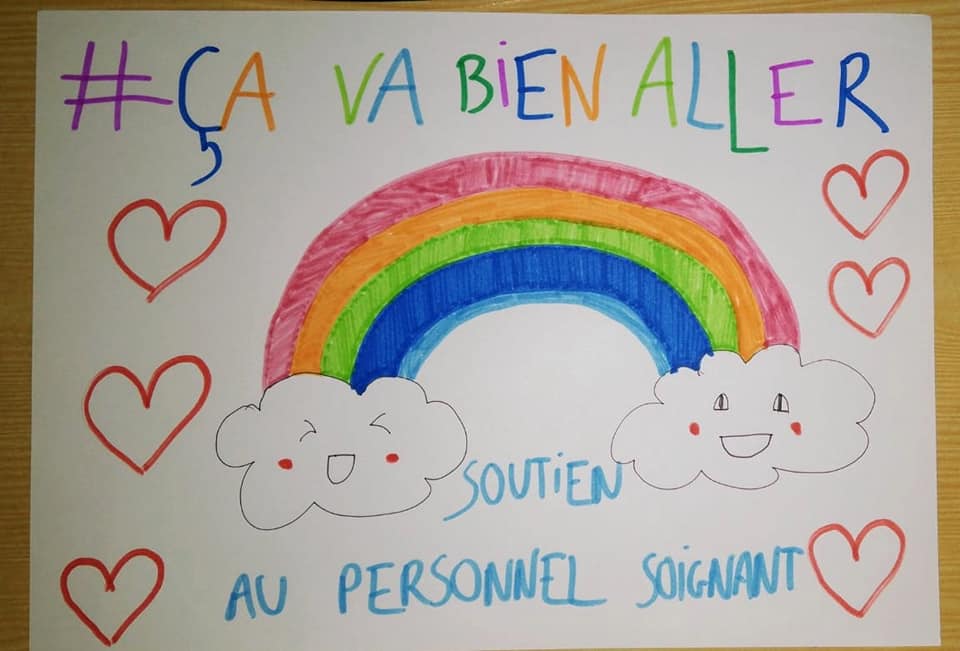 #ÇA VA BiEN ALLER
SOUTiEN
AU PERSONNEL SOiGNANT